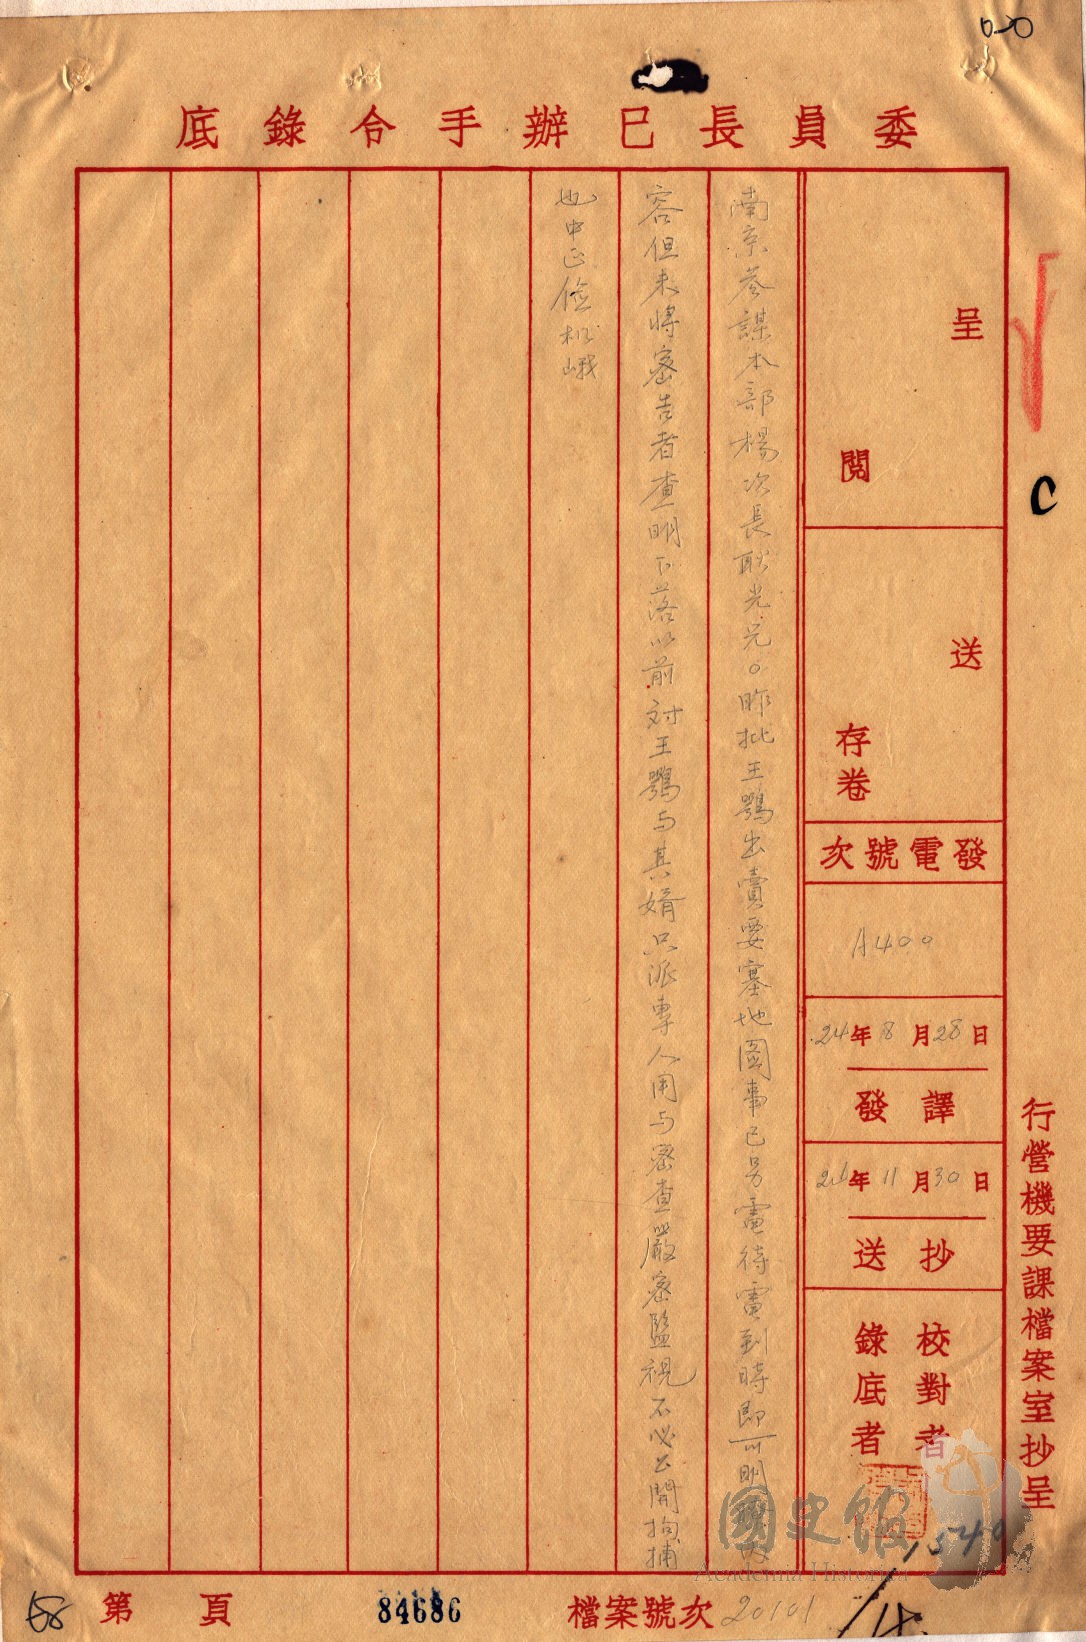 委員長已辦手令錄底
呈
閱
送
存卷
發電號次
A400
24年8月28日
譯發
24年11月30日
抄送
校對者
錄底者
行營機要課檔案室抄呈
南京參謀本部楊次長耿光兄。昨批王鶚出賣要塞地圖事已另電待電到時即可明瞭內
容但未將密告者查明下落以前對王鶚与其婿只派專人用与密查嚴密監視不必公開拘捕
也中正儉機峨
第 頁
84686
檔案號次 20101
68
C
國史館
Academia Historica